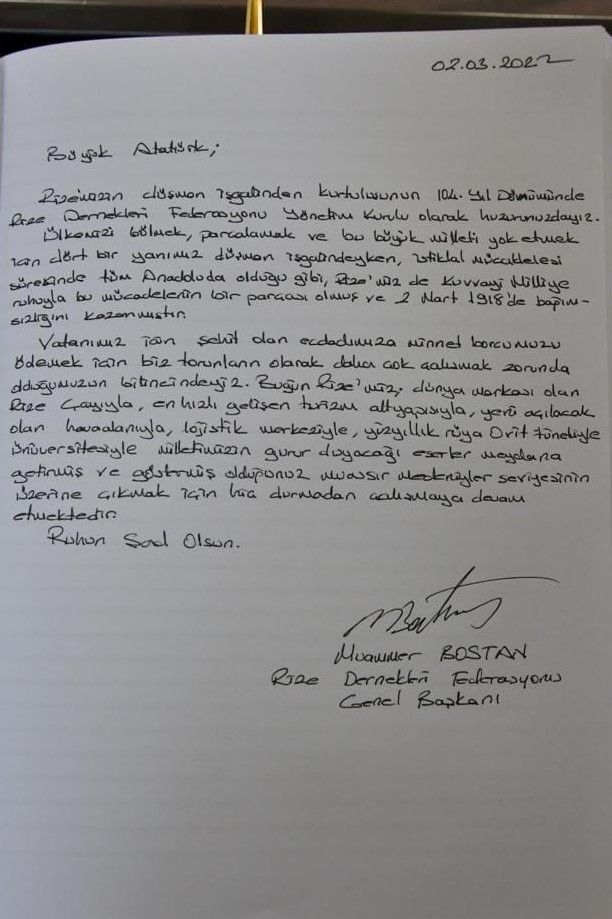 02.03.2022
Büyük Atatürk;
Rize'mizin düşman işgalinden kurtuluşunun 104. Yıl Dönümünde
Rize Dernekleri Federasyonu Yönetim Kurulu olarak huzurunuzdayız.
Ülkemizi bölmek, parçalamak ve bu büyük milleti yok etmek
için dört bir yanımız düşman işgalindeyken, istiklal mücadelesi
süresinde tüm Anadoluda olduğu gibi, Rize'miz de Kuvvayi Milliye
ruhuyla bu mücadelenin bir parçası olmuş ve 2 Mart 1918'de bağım-
sızlığını kazanmıştır.
Vatanımız için şehit olan ecdadımıza minnet borcumuzu
ödemek için biz torunların olarak daha çok çalışmak zorunda
olduğumuzun bilincindeyiz. Bugün Rize'miz; dünya markası olan
Rize Çayıyla, en hızlı gelişen turizm altyapısıyla, yeni açılacak
olan havaalanıyla, lojistik merkeziyle, yüzyıllık rüya Ovit tüneliyle
üniversitesiyle milletimizin gurur duyacağı eserler meydana
getirmiş ve göstermiş olduğunuz muasır medeniyler seviyesinin
üzerine çıkmak için hiç durmadan çalışmaya devam
etmektedir.
Ruhun Şad Olsun.
Muammer BOSTAN
Rize Dernekleri Federasyonu
Genel Başkanı